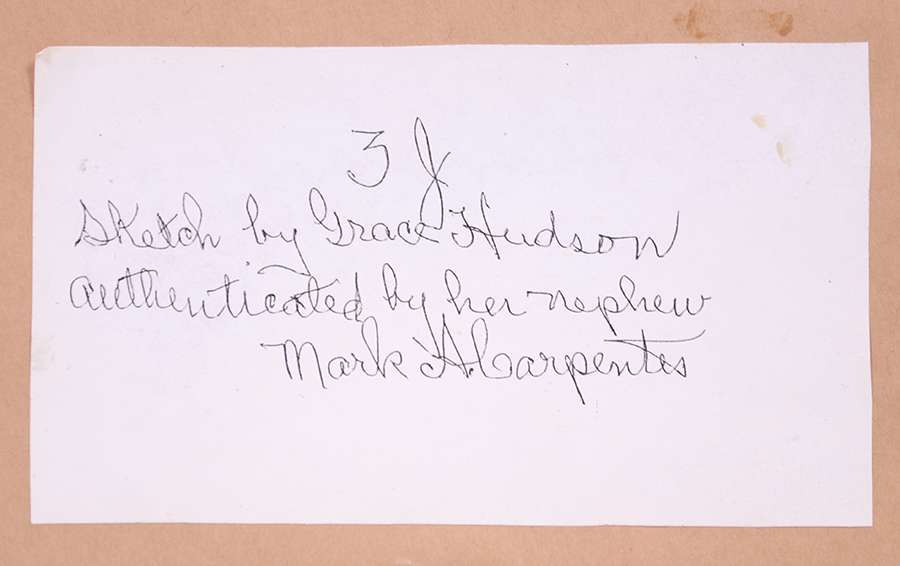 3 J
Sketch by Grace Hudson
authenticated by her nephew
Mark A Carpenter